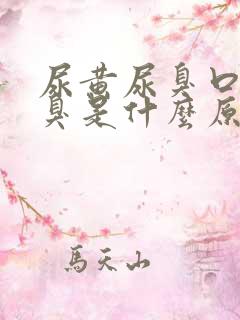 尿黄尿臭口
臭是什麼原
馬天山